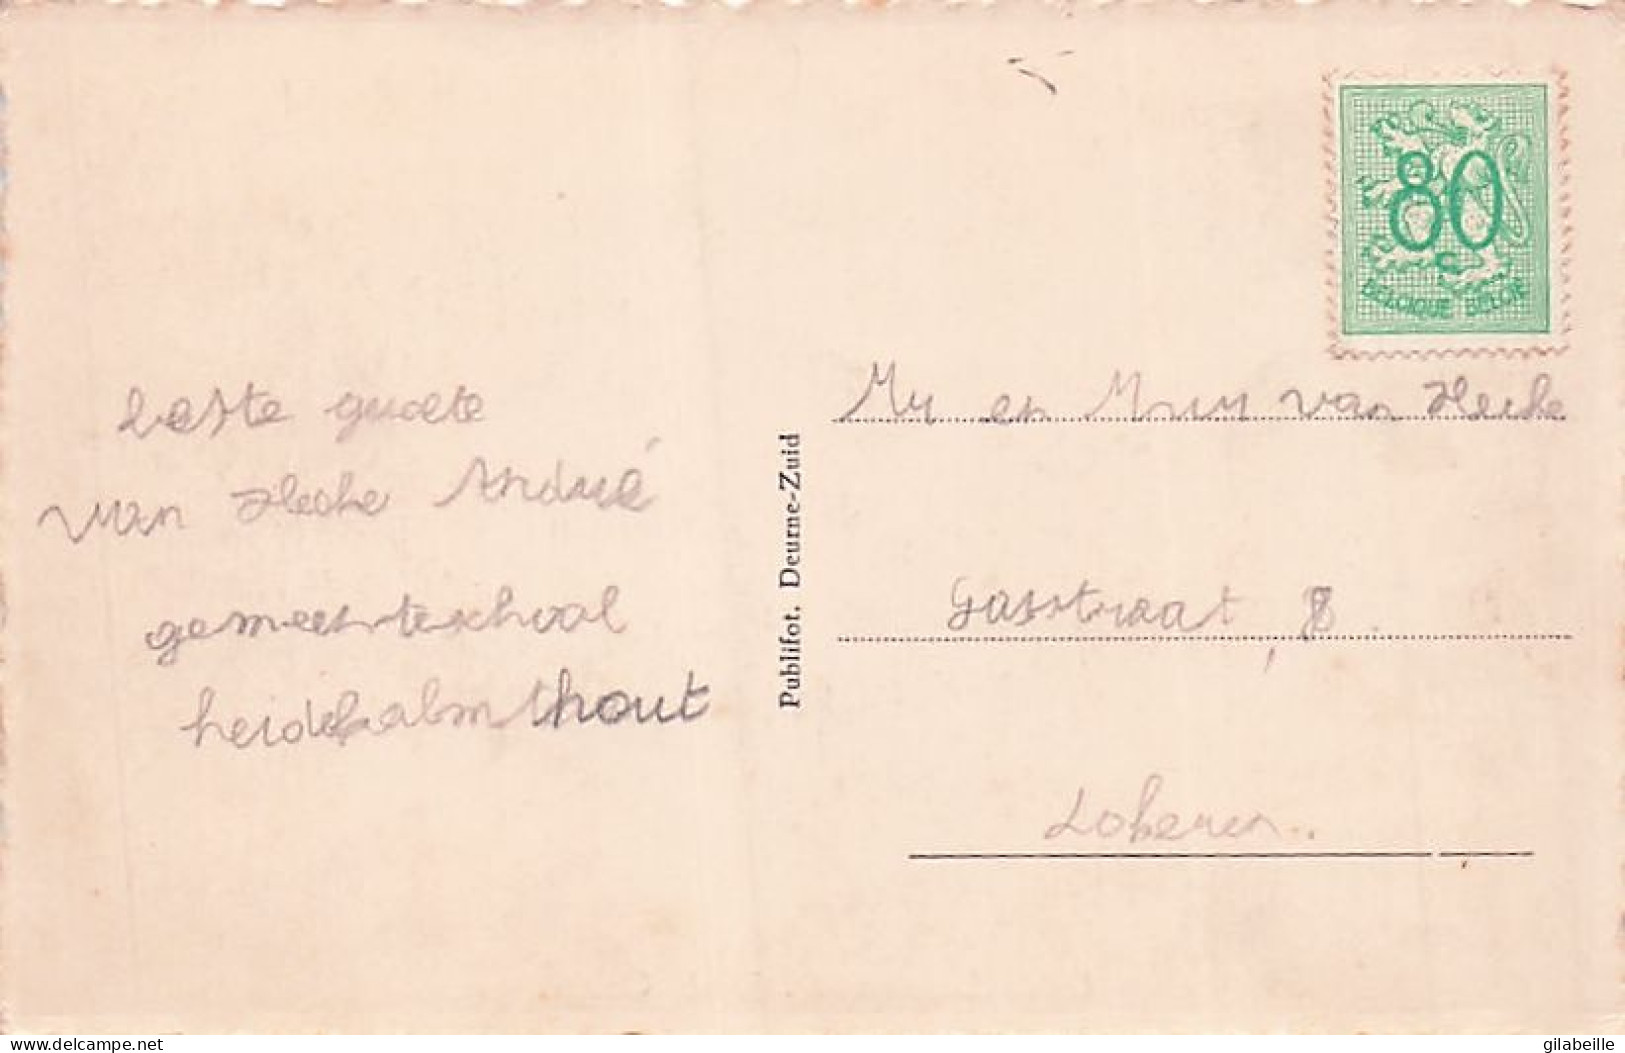 beste groete
van Hecke André
gemeenteschool
heidekalmthout
Publifot. Deurne-Zuid
80
C
BELGIQUE BELGIË
Mr en Mvr van Hecke
Gasstraat 8.
Lokeren.
delcampe.net
gilabeille